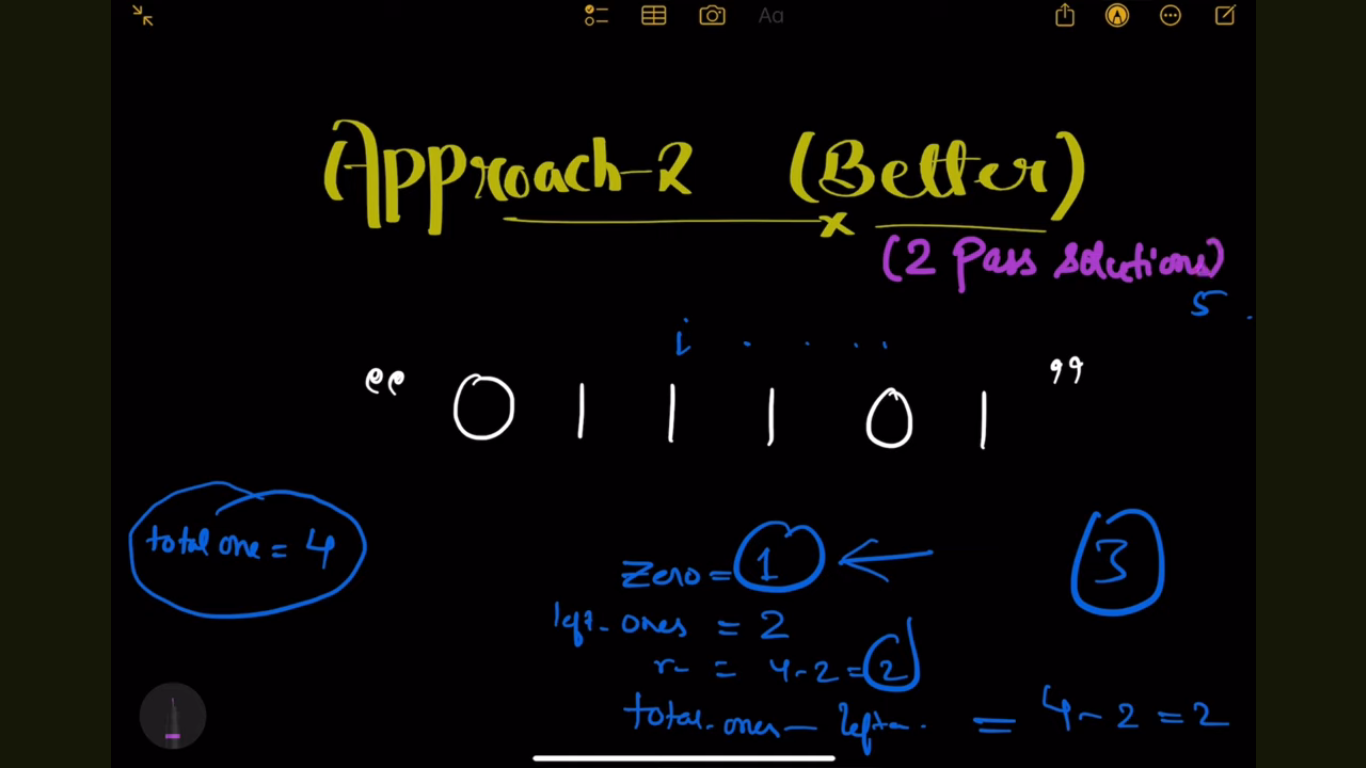 Aa
Approach-2 (Better)
(2 Pass solutions)
5
i . . . .
“ 0 1 1 1 0 1 ”
total one = 4
Zero = 1 ← 3
left-ones = 2
r- = 4-2=2
total-ones — left- = 4-2=2